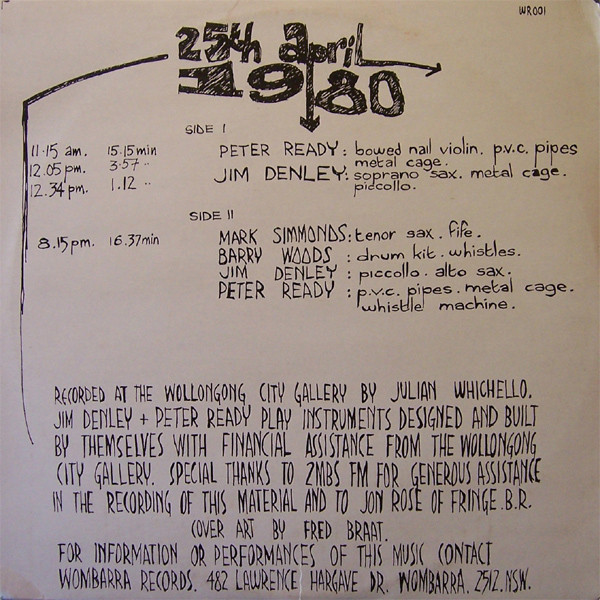 WR001
25th april
1980
SIDE I
11.15 am. 15.15min PETER READY: bowed nail violin. p.v.c. pipes
metal cage.
12.05 pm. 3.57 "
12.34 pm. 1.12 " JIM DENLEY: soprano sax. metal cage.
piccollo.
SIDE II
8.15pm. 16.37min MARK SIMMONDS: tenor sax. fife.
BARRY WOODS : drum kit. whistles.
JIM DENLEY : piccollo. alto sax.
PETER READY : p.v.c. pipes. metal cage.
whistle machine.
RECORDED AT THE WOLLONGONG CITY GALLERY BY JULIAN WHICHELLO.
JIM DENLEY + PETER READY PLAY INSTRUMENTS DESIGNED AND BUILT
BY THEMSELVES WITH FINANCIAL ASSISTANCE FROM THE WOLLONGONG
CITY GALLERY. SPECIAL THANKS TO 2MBS FM FOR GENEROUS ASSISTANCE
IN THE RECORDING OF THIS MATERIAL AND TO JON ROSE OF FRINGE.B.R.
COVER ART BY FRED BRAAT.
FOR INFORMATION OR PERFORMANCES OF THIS MUSIC CONTACT
WOMBARRA RECORDS. 482 LAWRENCE HARGAVE DR. WOMBARRA. 2512. NSW.